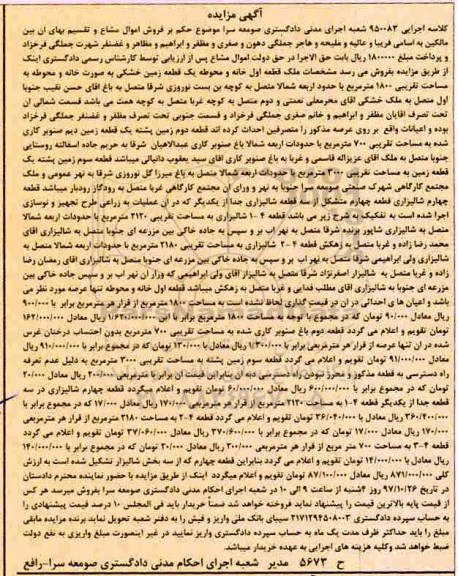 آگهی مزایده
کلاسه اجرایی ۹۵۰۰۸۳ شعبه اجرای مدنی دادگستری صومعه سرا موضوع حکم بر فروش اموال مشاع و تقسیم بهای آن بین
مالکین به اسامی فریبا و عالیه و ملیحه و هاجر جملگی دهون و صغری و مظفر و ابراهیم و مظاهر و غضنفر شهرت جملگی فرخزاد
و پرداخت مبلغ ۱۸۰۰۰۰۰ ریال بابت حق الاجرا در حق دولت اموال مشاع پس از ارزیابی توسط کارشناس رسمی دادگستری اینک
از طریق مزایده بفروش می رسد مشخصات ملک قطعه اول خانه و محوطه یک قطعه زمین خشکی به صورت خانه و محوطه به
مساحت تقریبی ۱۸۰۰ مترمربع با حدود اربعه شمالا متصل به کوچه بن بست نوروزی شرقا متصل به باغ اقای حسن نقیب جنوبا
اول متصل به ملک خشکی اقای محرمعلی نعمتی و دوم متصل به کوچه غربا متصل به کوچه همت می باشد قسمت شمالی ان
تحت تصرف اقایان مظفر و ابراهیم و خانم صغری جملگی فرخزاد و قسمت جنوبی تحت تصرف مظفر و غضنفر جملگی فرخزاد
بوده و اعیانات واقع بر روی عرصه مذکور را متصرفین احداث کرده اند قطعه دوم زمین پشته یک قطعه زمین دیم صنوبر کاری
شده به مساحت تقریبی ۷۰۰ مترمربع با حدودات اربعه شمالا باغ صنوبر کاری عبدالاهیان شرقا به حریم جاده اسفالته روستایی
جنوبا متصل به ملک اقای عزیزاله قاسمی و غربا به باغ صنوبر کاری اقای سید یعقوب دانیالی میباشد قطعه سوم زمین پشته یک
قطعه زمین به مساحت تقریبی ۳۰۰۰ مترمربع با حدودات اربعه شمالا متصل به باغ میرزا گل نوروزی شرقا به نهر عمومی و ملک
مجتمع کارگاهی شهرک صنعتی صومعه سرا جنوبا به نهر و ورای ان مجتمع کارگاهی غربا متصل به رودگاز رودبار میباشد قطعه
چهارم شالیزاری قطعه چهارم متشکل از سه قطعه شالیزاری جدا از یکدیگر که در ان عملیات به زراعی طرح تجهیز و نوسازی
اجرا شده است به تفکیک به شرح زیر می باشد قطعه ۴-۱ شالیزاری به مساحت تقریبی ۲۱۲۰ مترمربع با حدودات اربعه شمالا
متصل به شالیزاری شاپور پرنده شرقا متصل به نهر اب بر و سپس به جاده خاکی بین مزرعه ای جنوبا متصل به شالیزاری اقای
محمد رضا زاده و غربا متصل به زهکش قطعه ۴-۲ شالیزاری به مساحت تقریبی ۲۱۸۰ مترمربع با حدودات اربعه شمالا متصل به
شالیزاری ولی ابراهیمی شرقا متصل به نهر اب بر و سپس به جاده خاکی بین مزرعه ای جنوبا متصل به شالیزاری اقای رمضان رضا
زاده و غربا متصل به شالیزار اصغرنژاد شرقا متصل به شالیزار اقای ولی ابراهیمی که ورای ان نهر اب بر و سپس جاده خاکی بین
مزرعه ای جنوبا به شالیزاری اقای مطلب فدایی و غربا متصل به زهکش میباشد قطعه اول خانه و محوطه تنها عرصه مورد نظر می
باشد و اعیان های احداثی در ان در قیمت گذاری لحاظ نشده است به مساحت ۱۸۰۰ مترمربع از قرار هر مترمربع برابر با ۹۰۰/۰۰۰
ریال معادل ۹۰/۰۰۰ تومان که در مجموع با مساحت ۱۸۰۰ مترمربع برابر با ۱/۶۲۰/۰۰۰/۰۰۰ ریال معادل ۱۶۲/۰۰۰/۰۰۰
تومان تقویم و اعلام می گردد قطعه دوم باغ صنوبر کاری شده به مساحت تقریبی ۷۰۰ مترمربع بدون احتساب درختان غرس
شده در ان تنها عرصه از قرار هر مترمربعی برابر با ۱/۳۰۰/۰۰۰ ریال معادل ۱۳۰/۰۰۰ تومان که در مجموع برابر با ۹۱۰/۰۰۰/۰۰۰ ریال
معادل ۹۱/۰۰۰/۰۰۰ تومان تقویم و اعلام می گردد قطعه سوم زمین پشته به مساحت تقریبی ۳۰۰۰ مترمربع به دلیل عدم تعرفه
راه دسترسی به قطعه مذکور و مجاز نبودن راه دسترسی دیه ان بنابراین قیمت ان برابر با مترمربعی ۲۰۰/۰۰۰ ریال معادل ۲۰/۰۰۰
تومان که در مجموع برابر با ۶۰۰/۰۰۰/۰۰۰ ریال معادل ۶۰/۰۰۰/۰۰۰ تومان تقویم و اعلام میگردد قطعه چهارم شالیزاری در سه
قطعه جدا از یکدیگر قطعه ۴-۱ به مساحت ۲۱۲۰ مترمربع از قرار هر مترمربعی ۱۷۰/۰۰۰ ریال معادل ۱۷/۰۰۰ که در مجموع برابر با
۳۶۰/۴۰۰/۰۰۰ ریال معادل با ۳۶/۰۴۰/۰۰۰ تومان تقویم و اعلام می گردد قطعه ۴-۲ به مساحت ۲۱۸۰ مترمربع از قرار هر مترمربعی
۱۷۰/۰۰۰ ریال معادل ۱۷/۰۰۰ تومان که در مجموع برابر با ۳۷۰/۶۰۰/۰۰۰ ریال معادل ۳۷/۰۶۰/۰۰۰ تومان تقویم و اعلام می گردد
قطعه ۴-۳ به مساحت ۷۰۰ متر مربع از قرار هر مترمربعی ۲۰۰/۰۰۰ ریال معادل ۲۰/۰۰۰ تومان که در مجموع برابر با ۱۴۰/۰۰۰/۰۰۰
ریال معادل با ۱۴/۰۰۰/۰۰۰ تومان تقویم و اعلام می گردد بنابراین قطعه چهارم که از سه بخش شالیزار تشکیل شده است به ارزش
کلی ۸۷۱/۰۰۰/۰۰۰ ریال معادل ۸۷/۱۰۰/۰۰۰ تومان تقویم و اعلام میگردد اینک از طریق مزایده با حضور نماینده محترم دادستان
در تاریخ ۹۷/۱۰/۲۶ روز ۴شنبه از ساعت ۹ الی ۱۰ در شعبه اجرای احکام مدنی دادگستری صومعه سرا بفروش میرسد هر کس
از قیمت پایه بالاترین قیمت را پیشنهاد نماید فروخته خواهد شد ضمناً خریدار باید فی المجلس ۱۰ درصد قیمت پیشنهادی را
به حساب سپرده دادگستری ۲۱۷۱۲۹۴۵۰۸۰۰۳ سیبای بانک ملی واریز و فیش را به دفتر شعبه تحویل نماید برنده مزایده مابقی
مبلغ را باید حداکثر ظرف مدت یک ماه به حساب سپرده دادگستری واریز نمایید در غیر اینصورت مبلغ واریزی به نفع دولت
ضبط خواهد شد وکلیه هزینه های اجرایی به عهده خریدار میباشد.
ح ۵۶۷۳ مدیر شعبه اجرای احکام مدنی دادگستری صومعه سرا-رافع